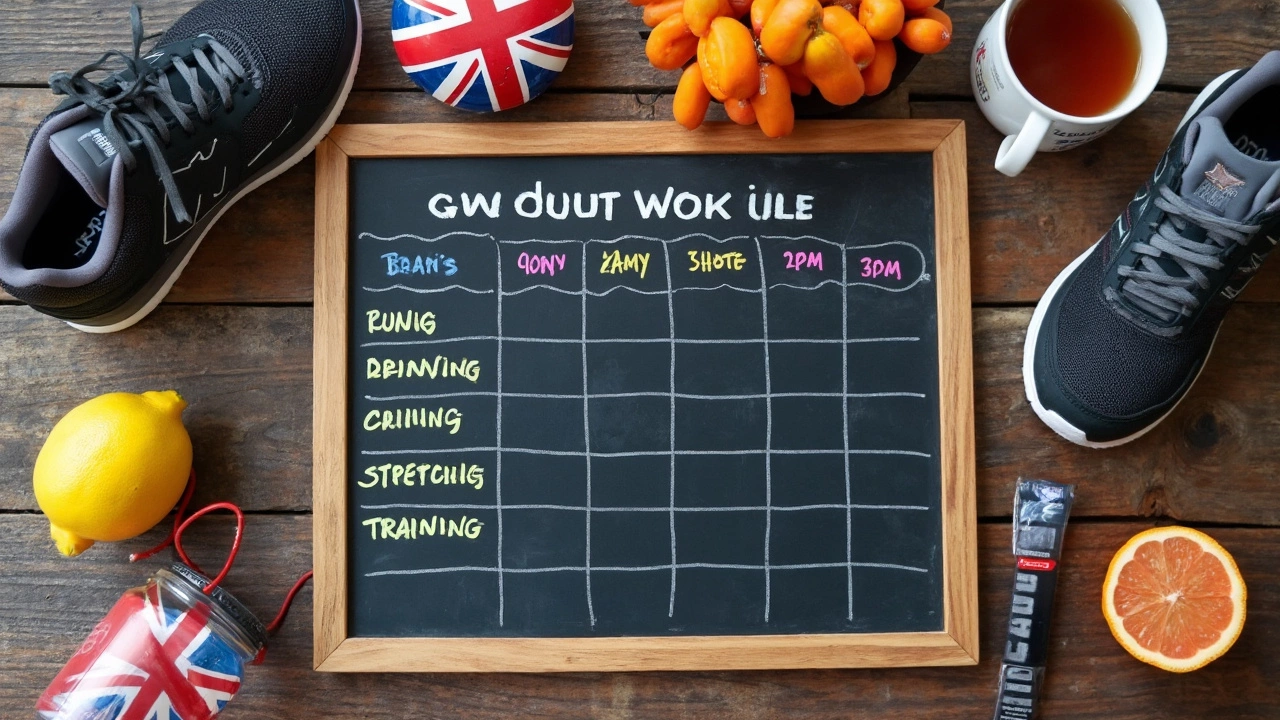 GW dUUT WOK iULE
BEAM'S 9ONY YAMY 3HOTE 2PM 3PM
RUNIG
DRINVING
CRIIIING
STPETCHIG
TRAINING